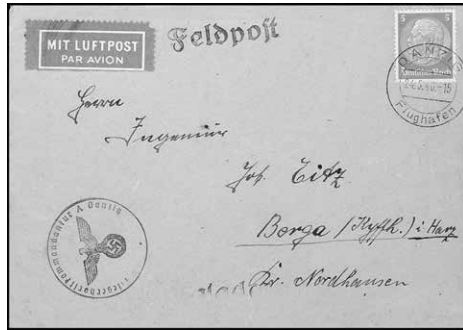 MIT LUFTPOST
PAR AVION
Feldpost
5 5
Deutsches Reich
DANZIG
Flughafen
Herrn
Ingenieur
Joh. Titz
Berga (Kyffh.) i. Harz
Kr. Nordhausen
Fliegerhorstkommandantur A Danzig